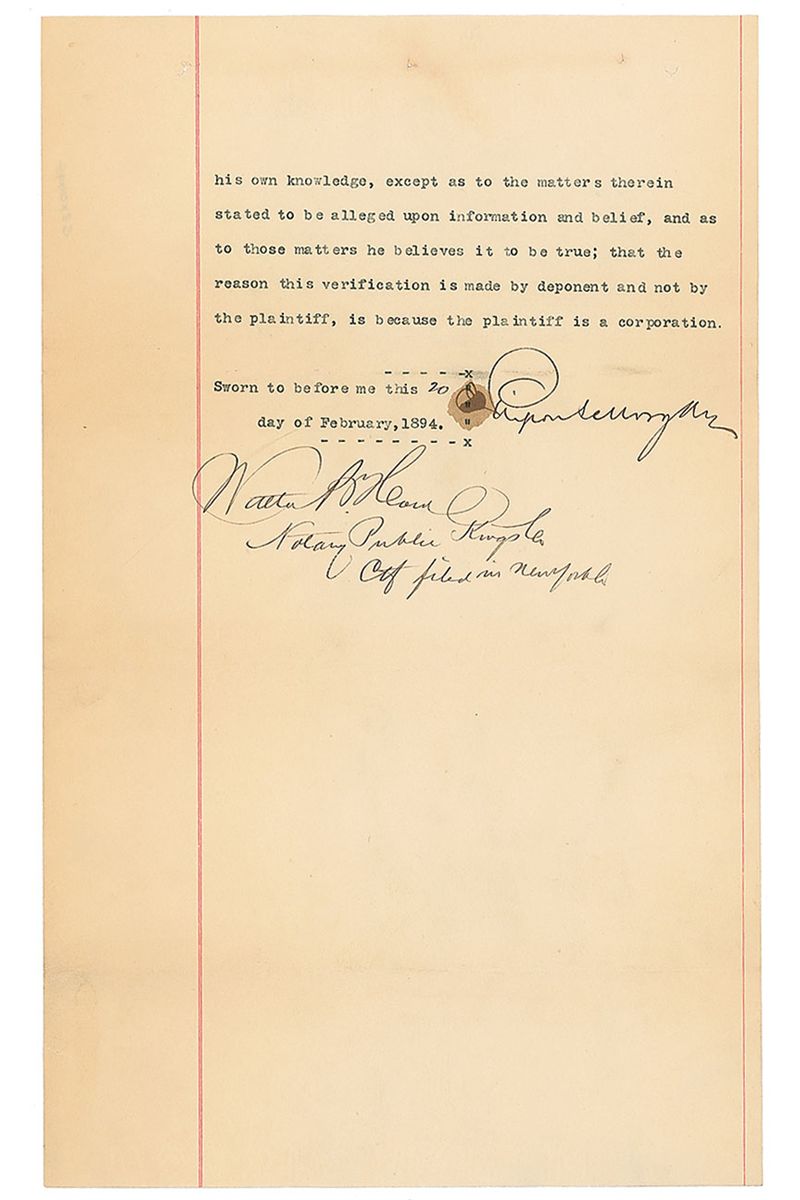 his own knowledge, except as to the matters therein
stated to be alleged upon information and belief, and as
to those matters he believes it to be true; that the
reason this verification is made by deponent and not by
the plaintiff, is because the plaintiff is a corporation.
- - - - -x
Sworn to before me this 20 "
day of February,1894. "
- - - - - - - - x
Notary Public Kings Co
Ctf filed in New York Co